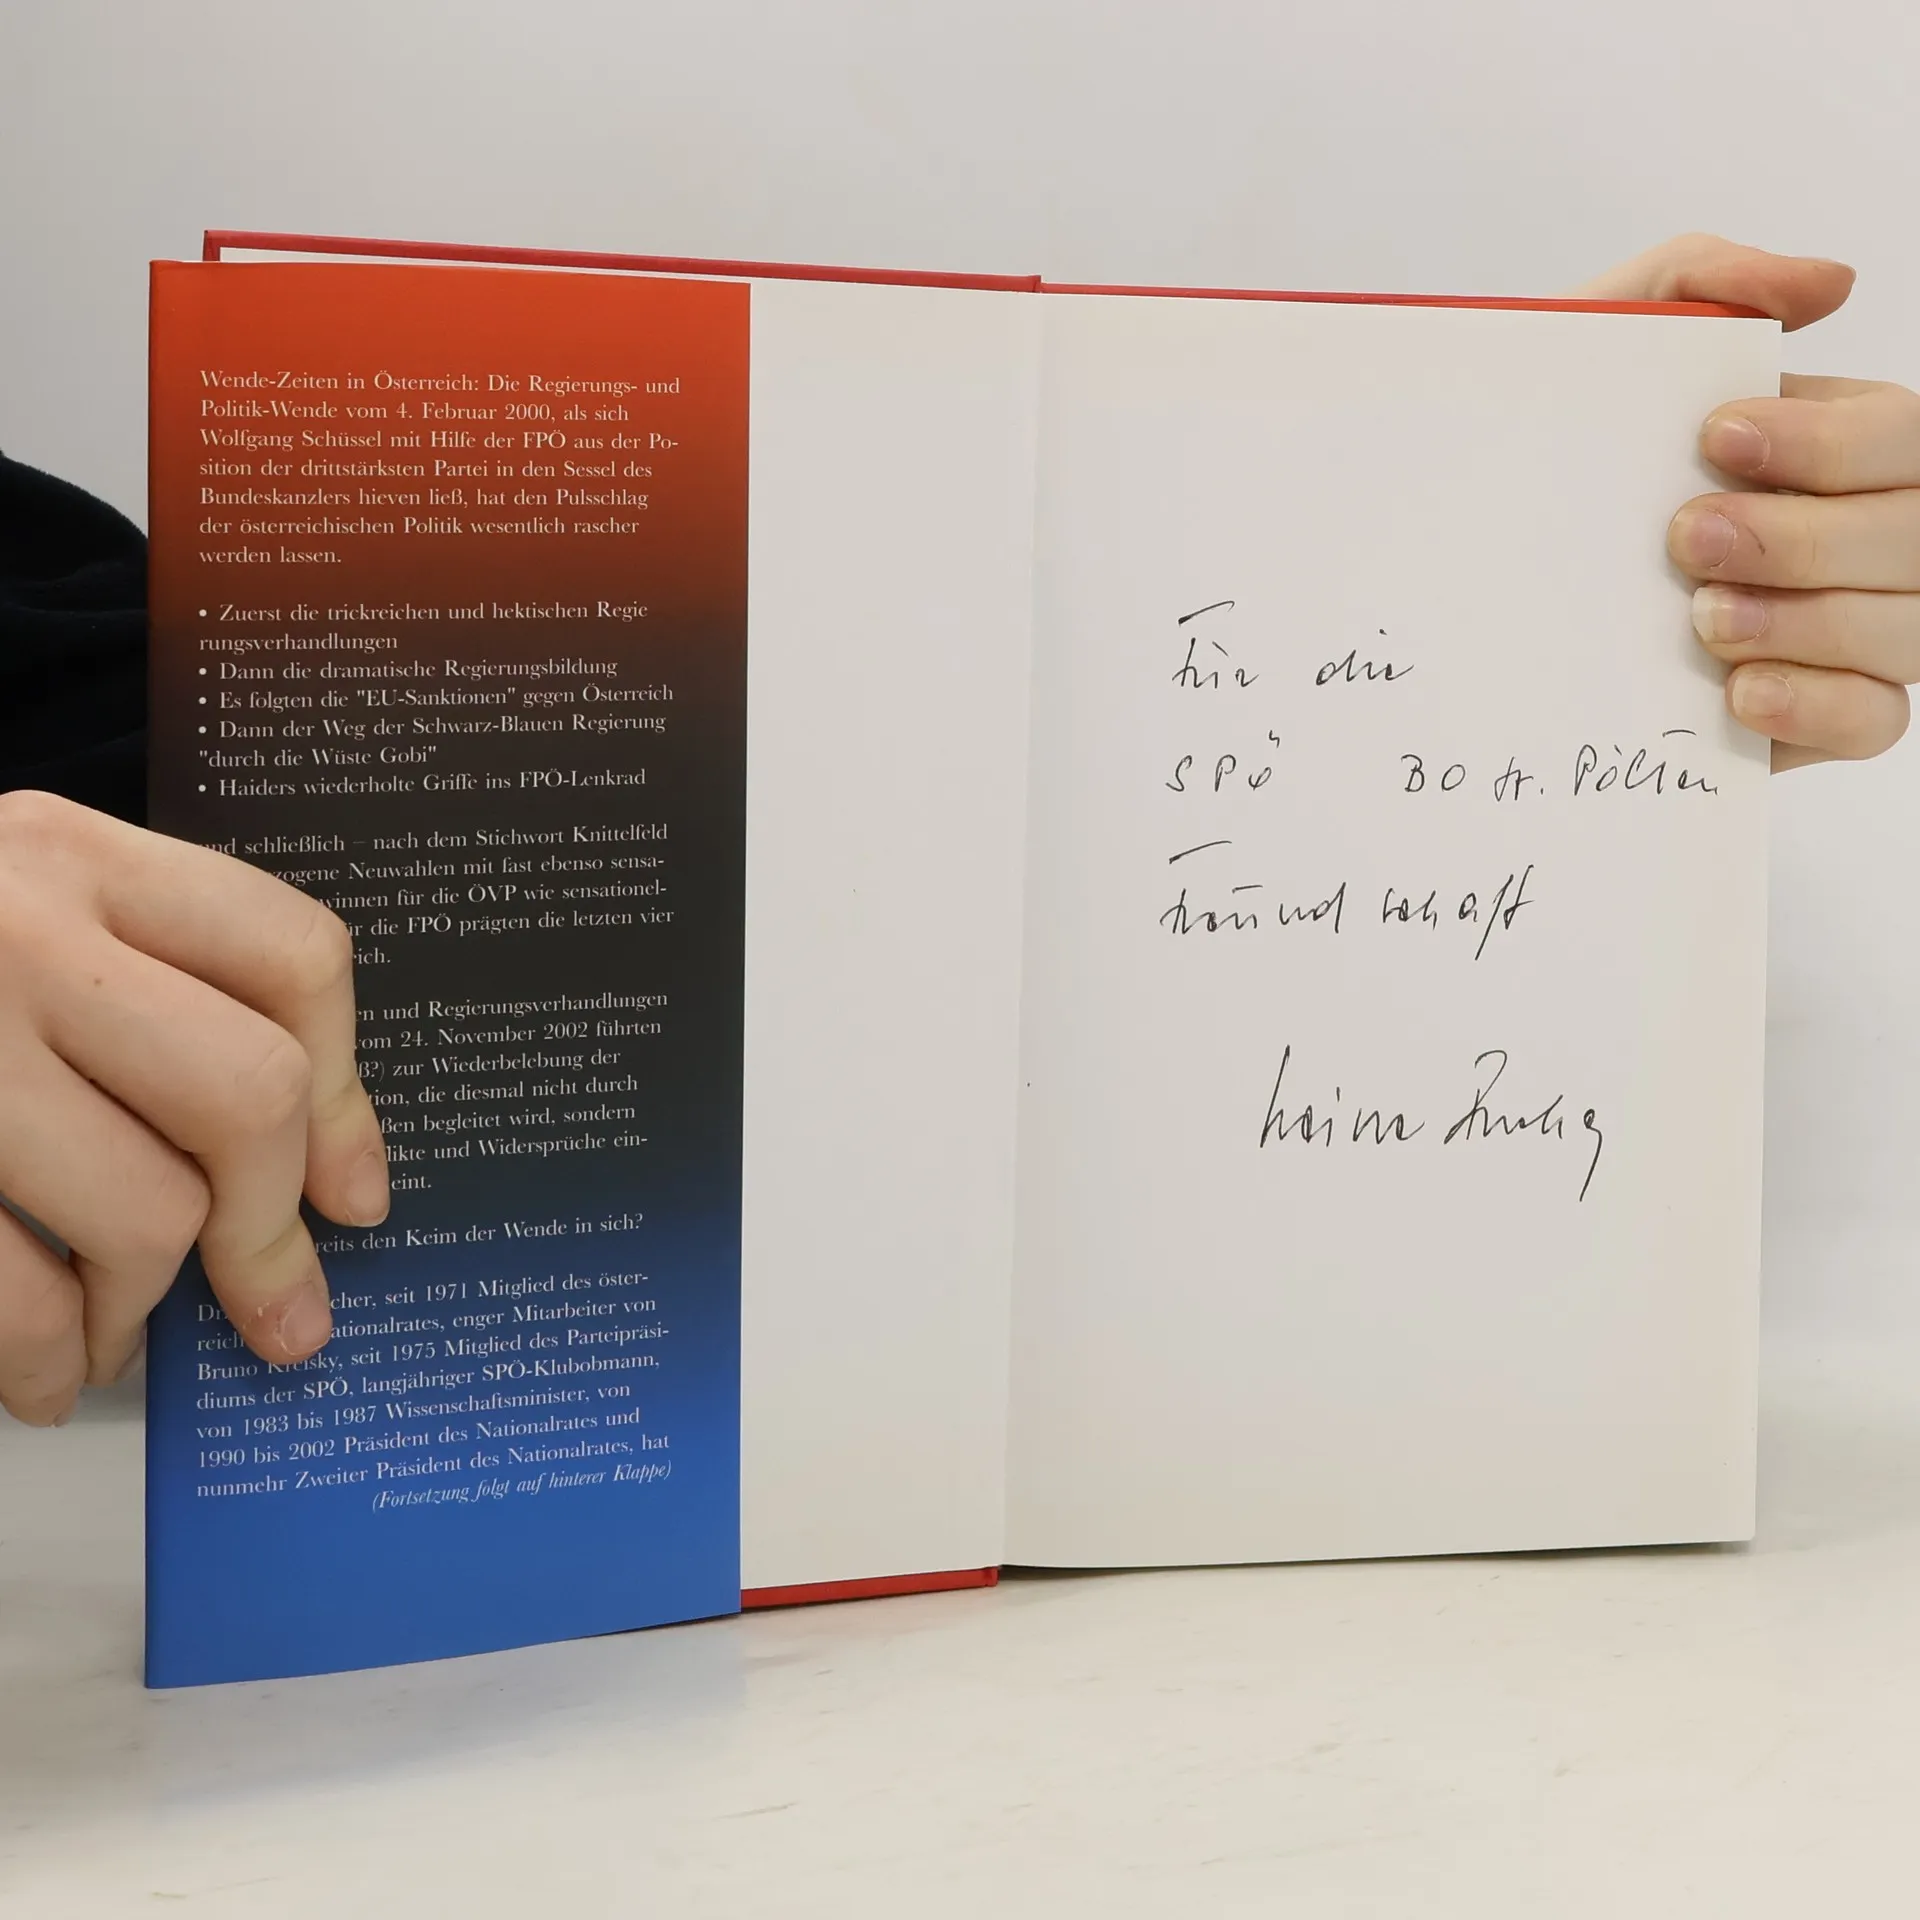 Wende-Zeiten in Österreich: Die Regierungs- und
Politik-Wende vom 4. Februar 2000, als sich
Wolfgang Schüssel mit Hilfe der FPÖ aus der Po-
sition der drittstärksten Partei in den Sessel des
Bundeskanzlers hieven ließ, hat den Pulsschlag
der österreichischen Politik wesentlich rascher
werden lassen.
• Zuerst die trickreichen und hektischen Regie
rungsverhandlungen
• Dann die dramatische Regierungsbildung
• Es folgten die "EU-Sanktionen" gegen Österreich
• Dann der Weg der Schwarz-Blauen Regierung
"durch die Wüste Gobi"
• Haiders wiederholte Griffe ins FPÖ-Lenkrad
und schließlich – nach dem Stichwort Knittelfeld
zogene Neuwahlen mit fast ebenso sensa-
winnen für die ÖVP wie sensationel-
für die FPÖ prägten die letzten vier
rich.
en und Regierungsverhandlungen
vom 24. November 2002 führten
ß?) zur Wiederbelebung der
tion, die diesmal nicht durch
ßen begleitet wird, sondern
likte und Widersprüche ein-
eint.
reits den Keim der Wende in sich?
Dr. cher, seit 1971 Mitglied des öster-
reich ationalrates, enger Mitarbeiter von
Bruno Kreisky, seit 1975 Mitglied des Parteipräsi-
diums der SPÖ, langjähriger SPÖ-Klubobmann,
von 1983 bis 1987 Wissenschaftsminister, von
1990 bis 2002 Präsident des Nationalrates und
nunmehr Zweiter Präsident des Nationalrates, hat
(Fortsetzung folgt auf hinterer Klappe)
Für die
SPÖ BO St. Pölten
Freundschaft